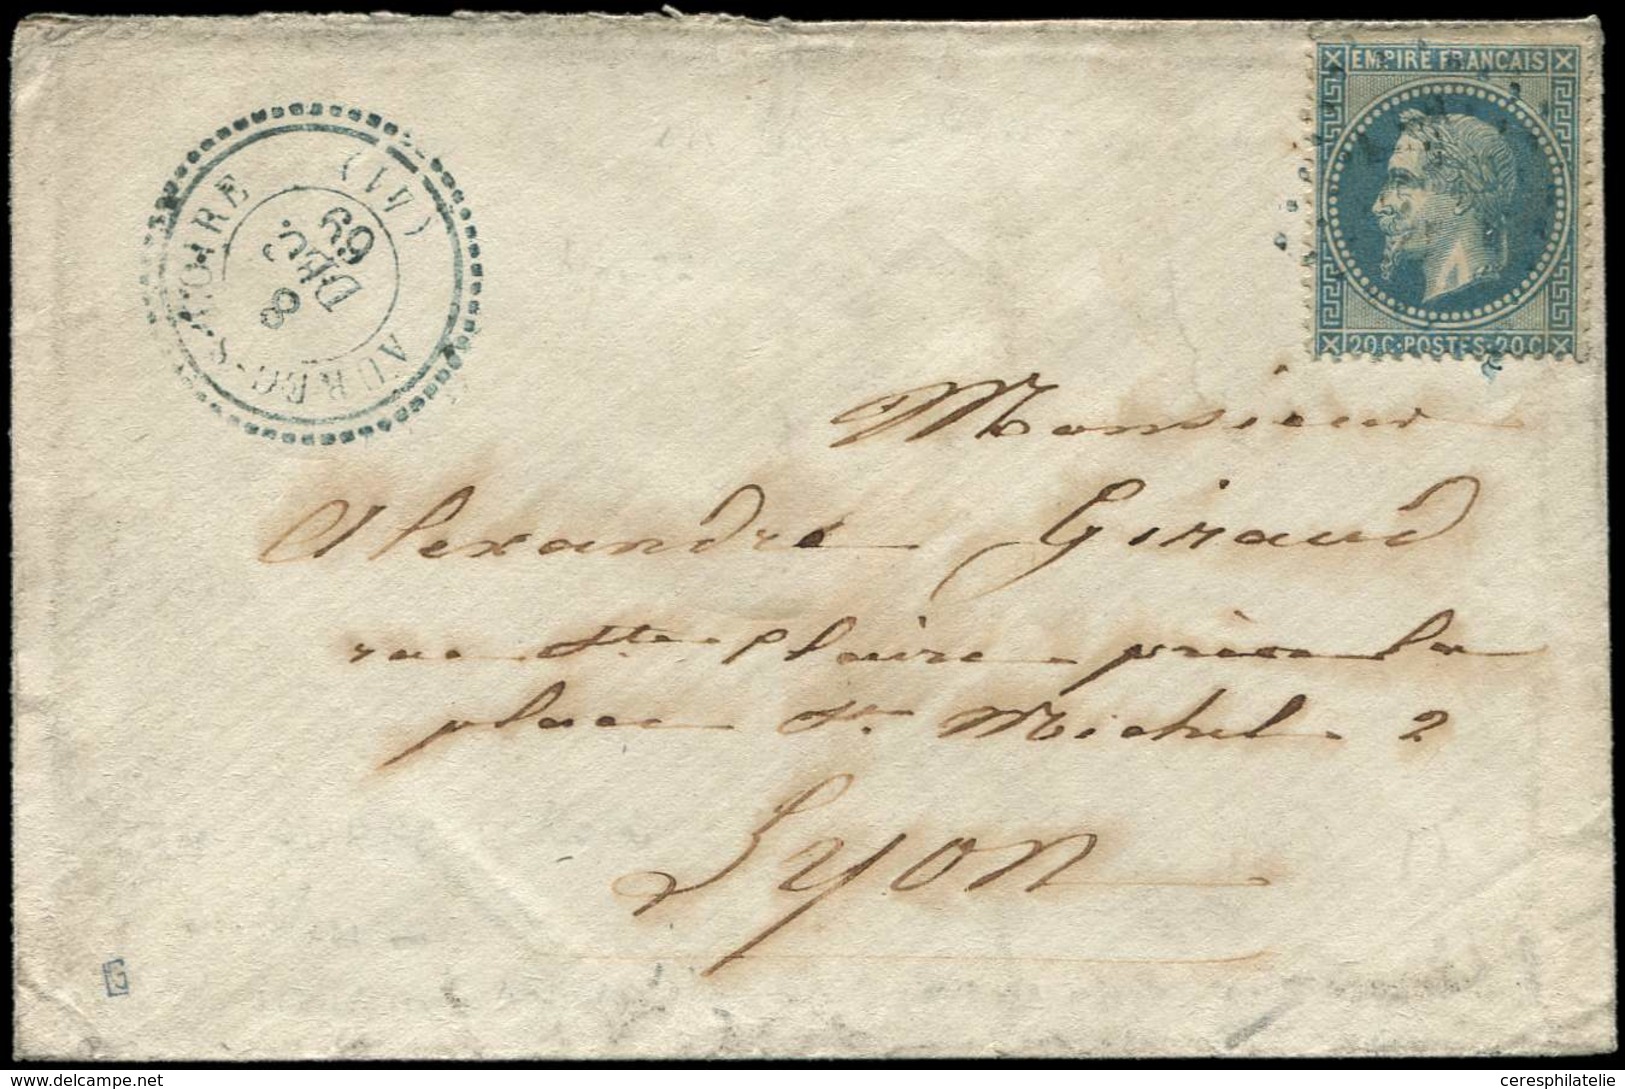 EMPIRE FRANÇAIS
20C·POSTES·20C
(41)
8
DÉC.
69
Monsieur
Alexandre Giraud
rue Ste Claire près la
place St. Michel. 2
Lyon
delcampe.net
ceresphilatelie